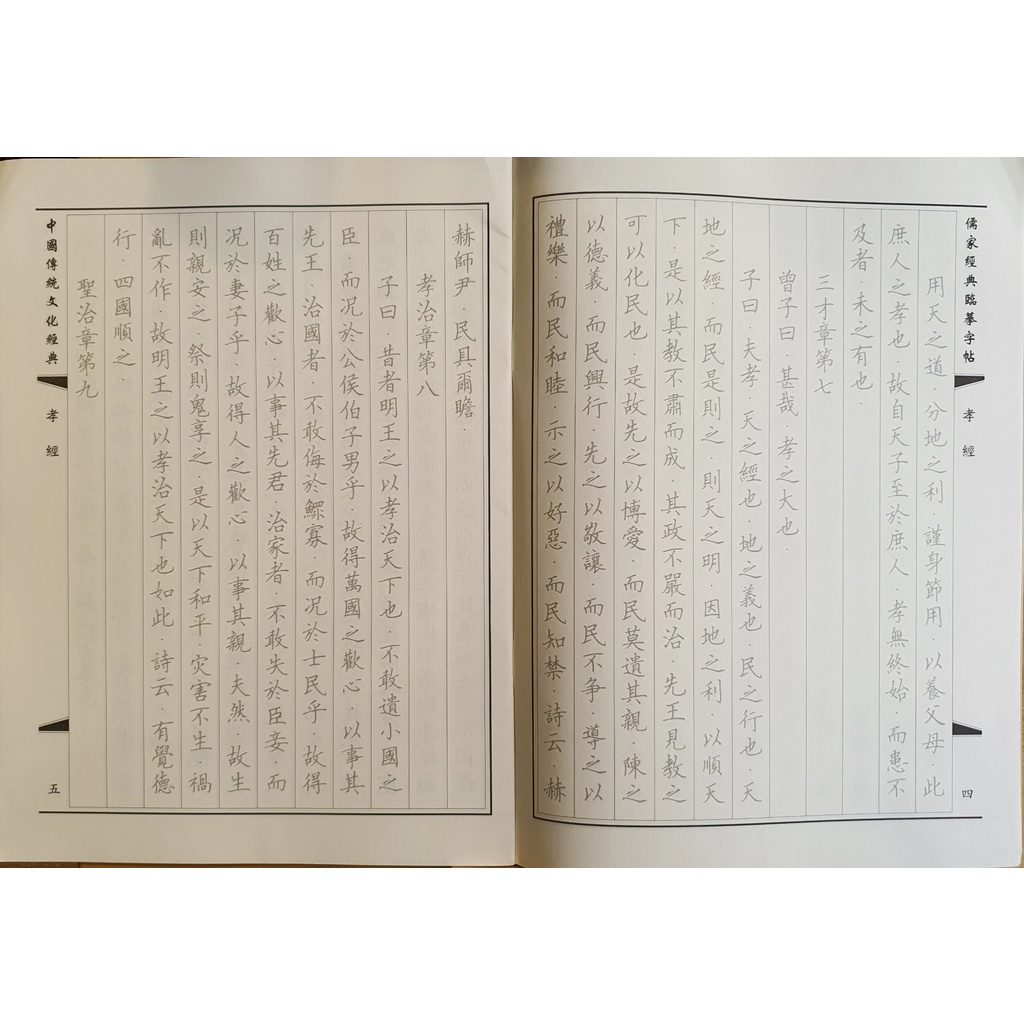 儒家經典臨摹字帖
孝經
四
用天之道·分地之利·謹身節用·以養父母·此
庶人之孝也·故自天子至於庶人·孝無終始·而患不
及者·未之有也·
三才章第七
曾子曰·甚哉·孝之大也·
子曰·夫孝·天之經也·地之義也·民之行也·天
地之經·而民是則之·則天之明·因地之利·以順天
下·是以其教不肅而成·其政不嚴而治·先王見教之
可以化民也·是故先之以博愛·而民莫遺其親·陳之
以德義·而民興行·先之以敬讓·而民不争·導之以
禮樂·而民和睦·示之以好惡·而民知禁·詩云·赫
赫師尹·民具爾瞻·
孝治章第八
子曰·昔者明王之以孝治天下也·不敢遺小國之
臣·而况於公侯伯子男乎·故得萬國之歡心·以事其
先王·治國者·不敢侮於鰥寡·而况於士民乎·故得
百姓之歡心·以事其先君·治家者·不敢失於臣妾·而
况於妻子乎·故得人之歡心·以事其親·夫然·故生
則親安之·祭則鬼享之·是以天下和平·灾害不生·禍
亂不作·故明王之以孝治天下也如此·詩云·有覺德
行·四國順之·
聖治章第九
中國傳統文化經典
孝經
五